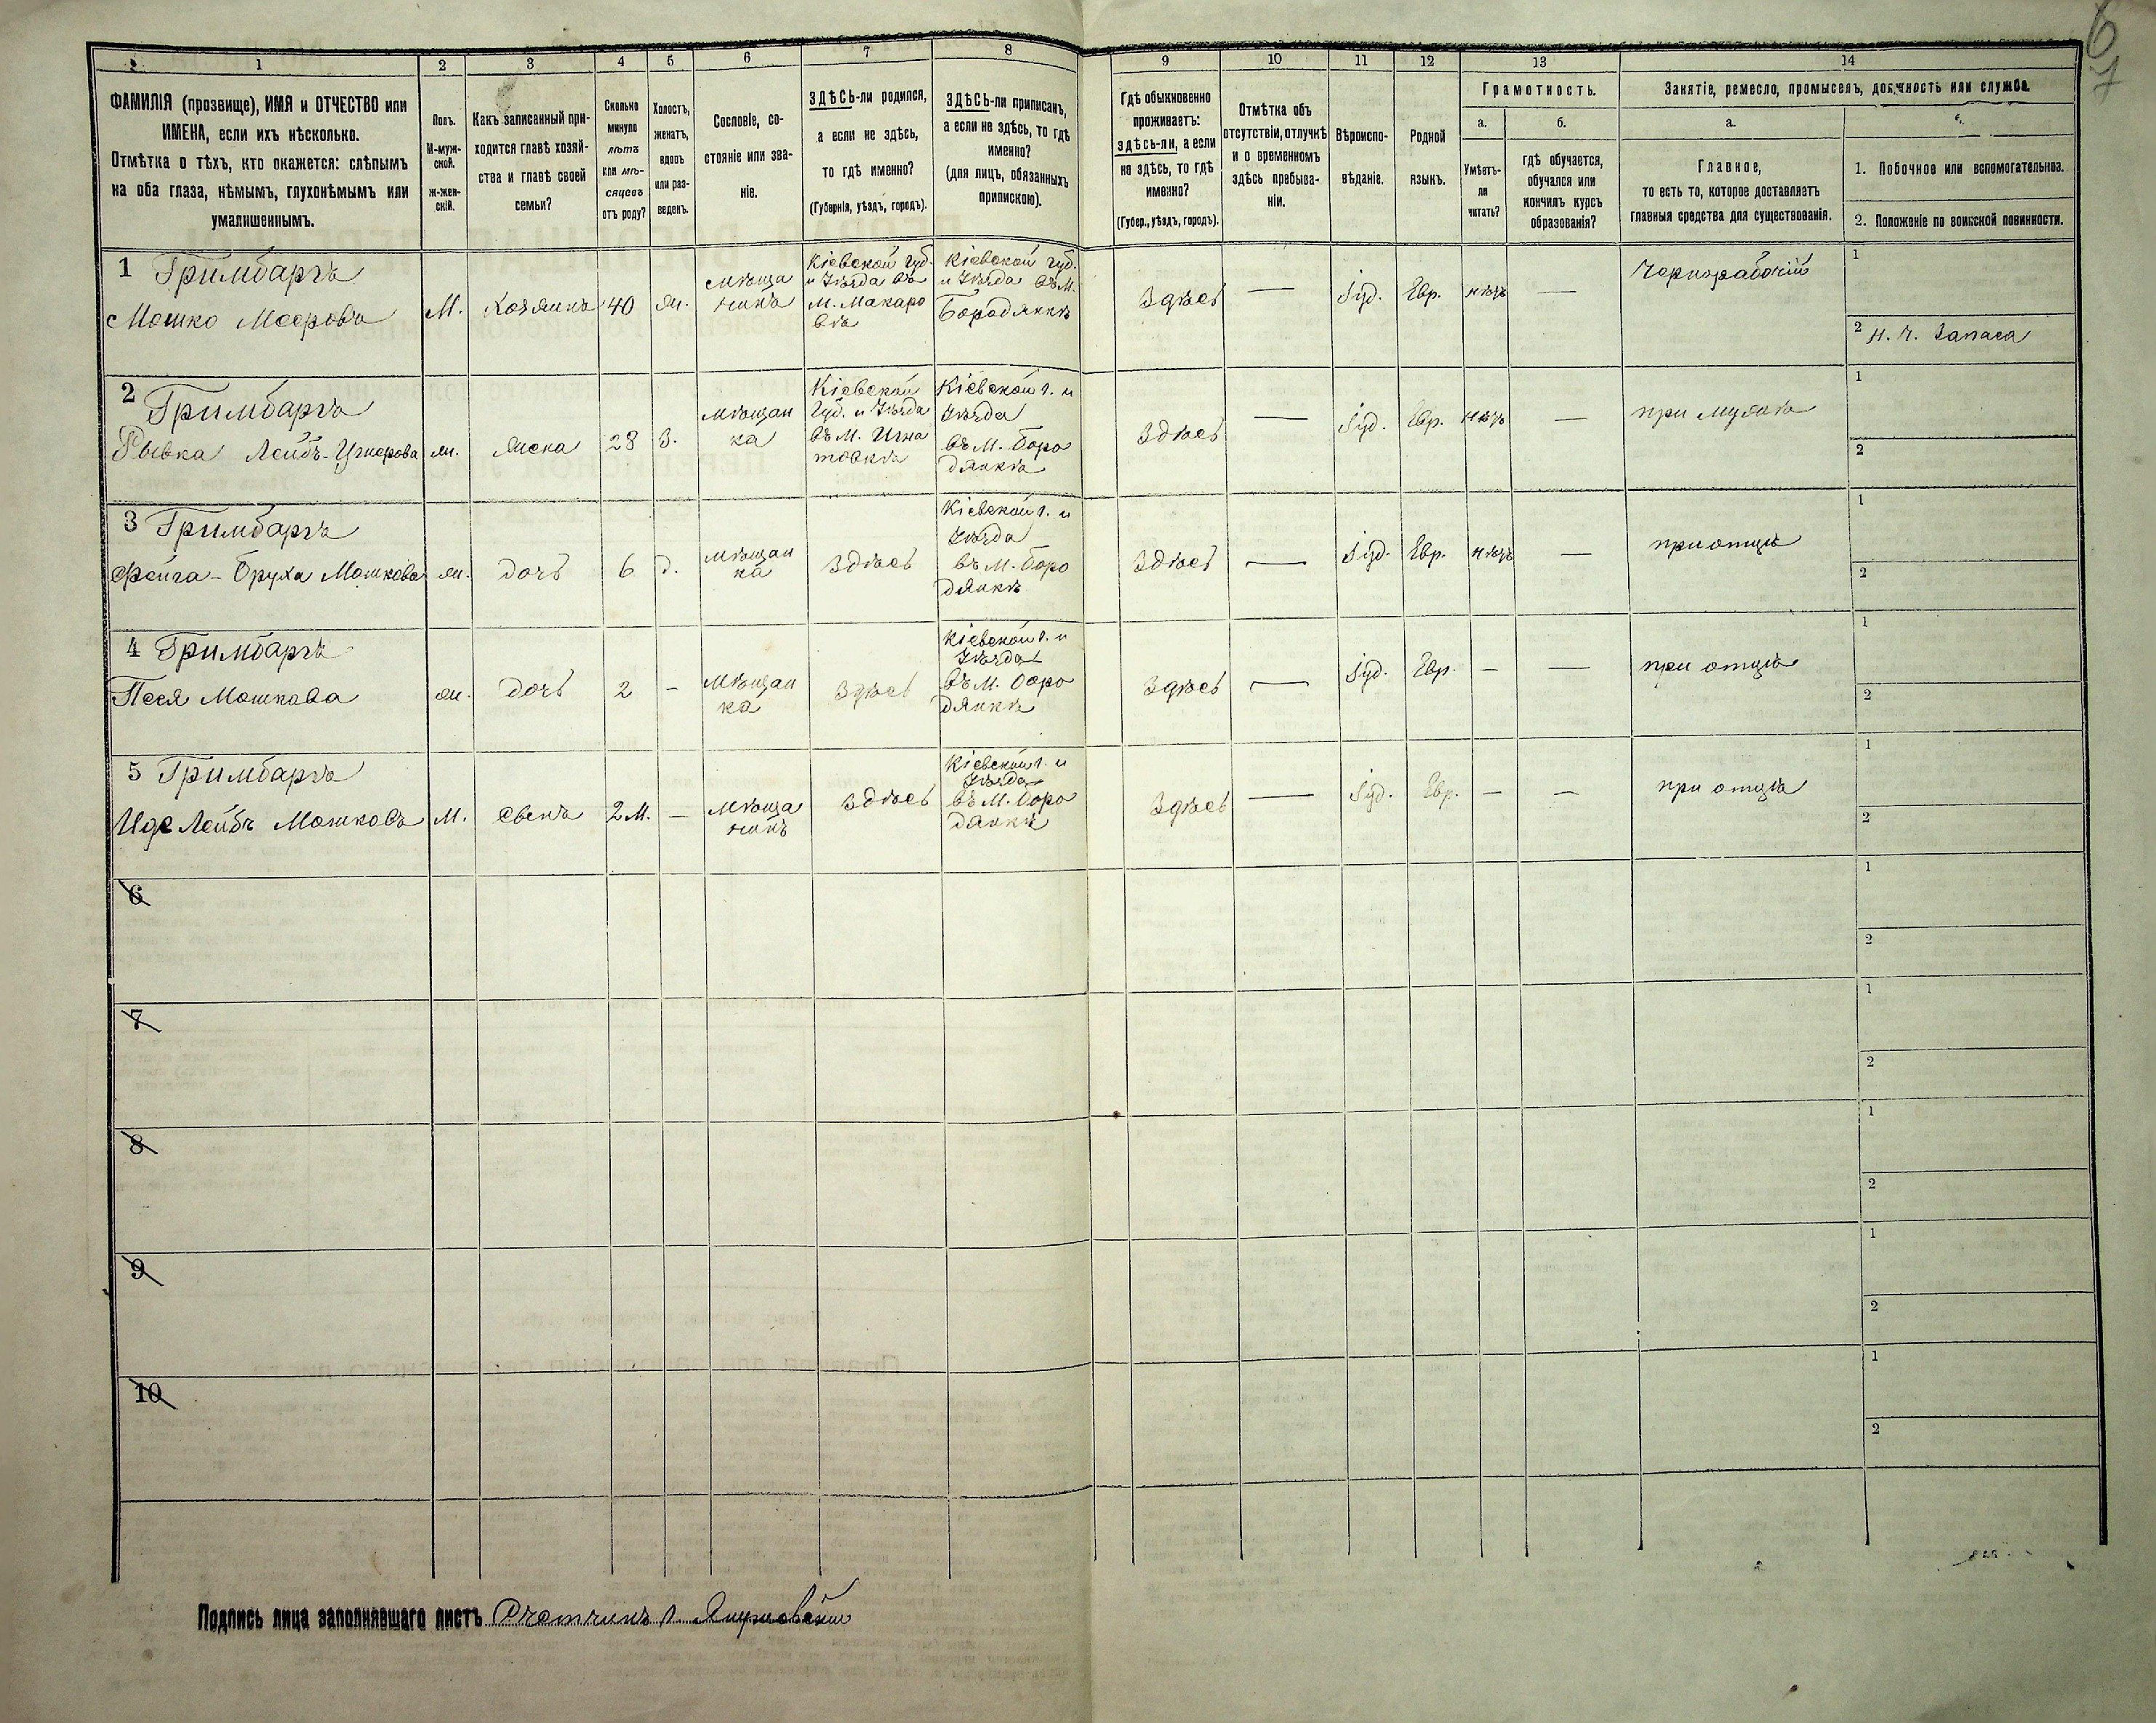 6
7
1 2 3 4 5 6 7 8 9 10 11 12 13 14
ФАМИЛІЯ (прозвище), ИМЯ и ОТЧЕСТВО или
ИМЕНА, если ихъ нѣсколько.
Отмѣтка о тѣхъ, кто окажется: слѣпымъ
на оба глаза, нѣмымъ, глухонѣмымъ или
умалишеннымъ.
Полъ.
М-муж-
ской.
ж-жен-
скій.
Какъ записанный при-
ходится главѣ хозяй-
ства и главѣ своей
семьи?
Сколько
минуло
лѣтъ
или мѣ-
сяцевъ
отъ роду?
Холостъ,
женатъ,
вдовъ
или раз-
веденъ.
Сословіе, со-
стояніе или зва-
ніе.
ЗДѢСЬ-ли родился,
а если не здѣсь,
то гдѣ именно?
(Губернія, уѣздъ, городъ).
ЗДѢСЬ-ли приписанъ,
а если не здѣсь, то гдѣ
именно?
(для лицъ, обязанныхъ
припискою).
Гдѣ обыкновенно
проживаетъ:
здѣсь-ли, а если
не здѣсь, то гдѣ
именно?
(Губер., уѣздъ, городъ).
Отмѣтка объ
отсутствіи, отлучкѣ
и о временномъ
здѣсь пребыва-
ніи.
Вѣроиспо-
вѣданіе.
Родной
языкъ.
Грамотность.
а.
Умѣетъ-
ли
читать?
б.
гдѣ обучается,
обучался или
кончилъ курсъ
образованія?
Занятіе, ремесло, промыселъ, должность или служба.
а.
Главное,
то есть то, которое доставляетъ
главныя средства для существованія.
1. Побочное или вспомогательное.
2. Положеніе по воинской повинности.
1 Гримбаргъ
Мошко Мееровъ
М.
Хозяинъ
40
ж.
мѣща
нинъ
Кіевской губ.
и Уѣзда въ
М. Макаро
въ
Кіевской губ.
и Уѣзда въ М.
Бородянкѣ
Здѣсь
—
Іуд.
Евр.
нѣтъ
—
Чернорабочій
1
2 н. ч. Запаса
2
Гримбаргъ
Рывка Лейбъ-
ж.
жена
28
З.
мѣщан
ка
Кіевской
Губ. и Уѣзда
въ М. Игна
товкѣ
Кіевской г. и
Уѣзда
въ М. Боро
дянкѣ
Здѣсь
—
Іуд.
Евр.
нѣтъ
—
при мужѣ
1
2
3 Гримбаргъ
Фейга-Бруха Мошкова
ж.
дочь
6
д.
мѣщан
ка
Здѣсь
Кіевской г. и
Уѣзда
въ М. Боро
дянкѣ
Здѣсь
—
Іуд.
Евр.
нѣтъ
—
при отцѣ
1
2
4 Гримбаргъ
Песя Мошкова
ж.
дочь
2
-
Мѣщан
ка
Здѣсь
Кіевской г. и
Уѣзда
въ М. Боро
дянкѣ
Здѣсь
—
Іуд.
Евр.
-
—
при отцѣ
1
2
5 Гримбаргъ
Лейбъ Мошковъ
М.
Сынъ
2 М.
-
Мѣща
нинъ
Здѣсь
Кіевской г. и
Уѣзда
въ М. Боро
дянкѣ
Здѣсь
—
Іуд.
Евр.
-
—
при отцѣ
1
2
6
1
2
7
1
2
8
1
2
9
1
2
10
1
2
Подпись лица заполнявшаго листъ Счетчикъ